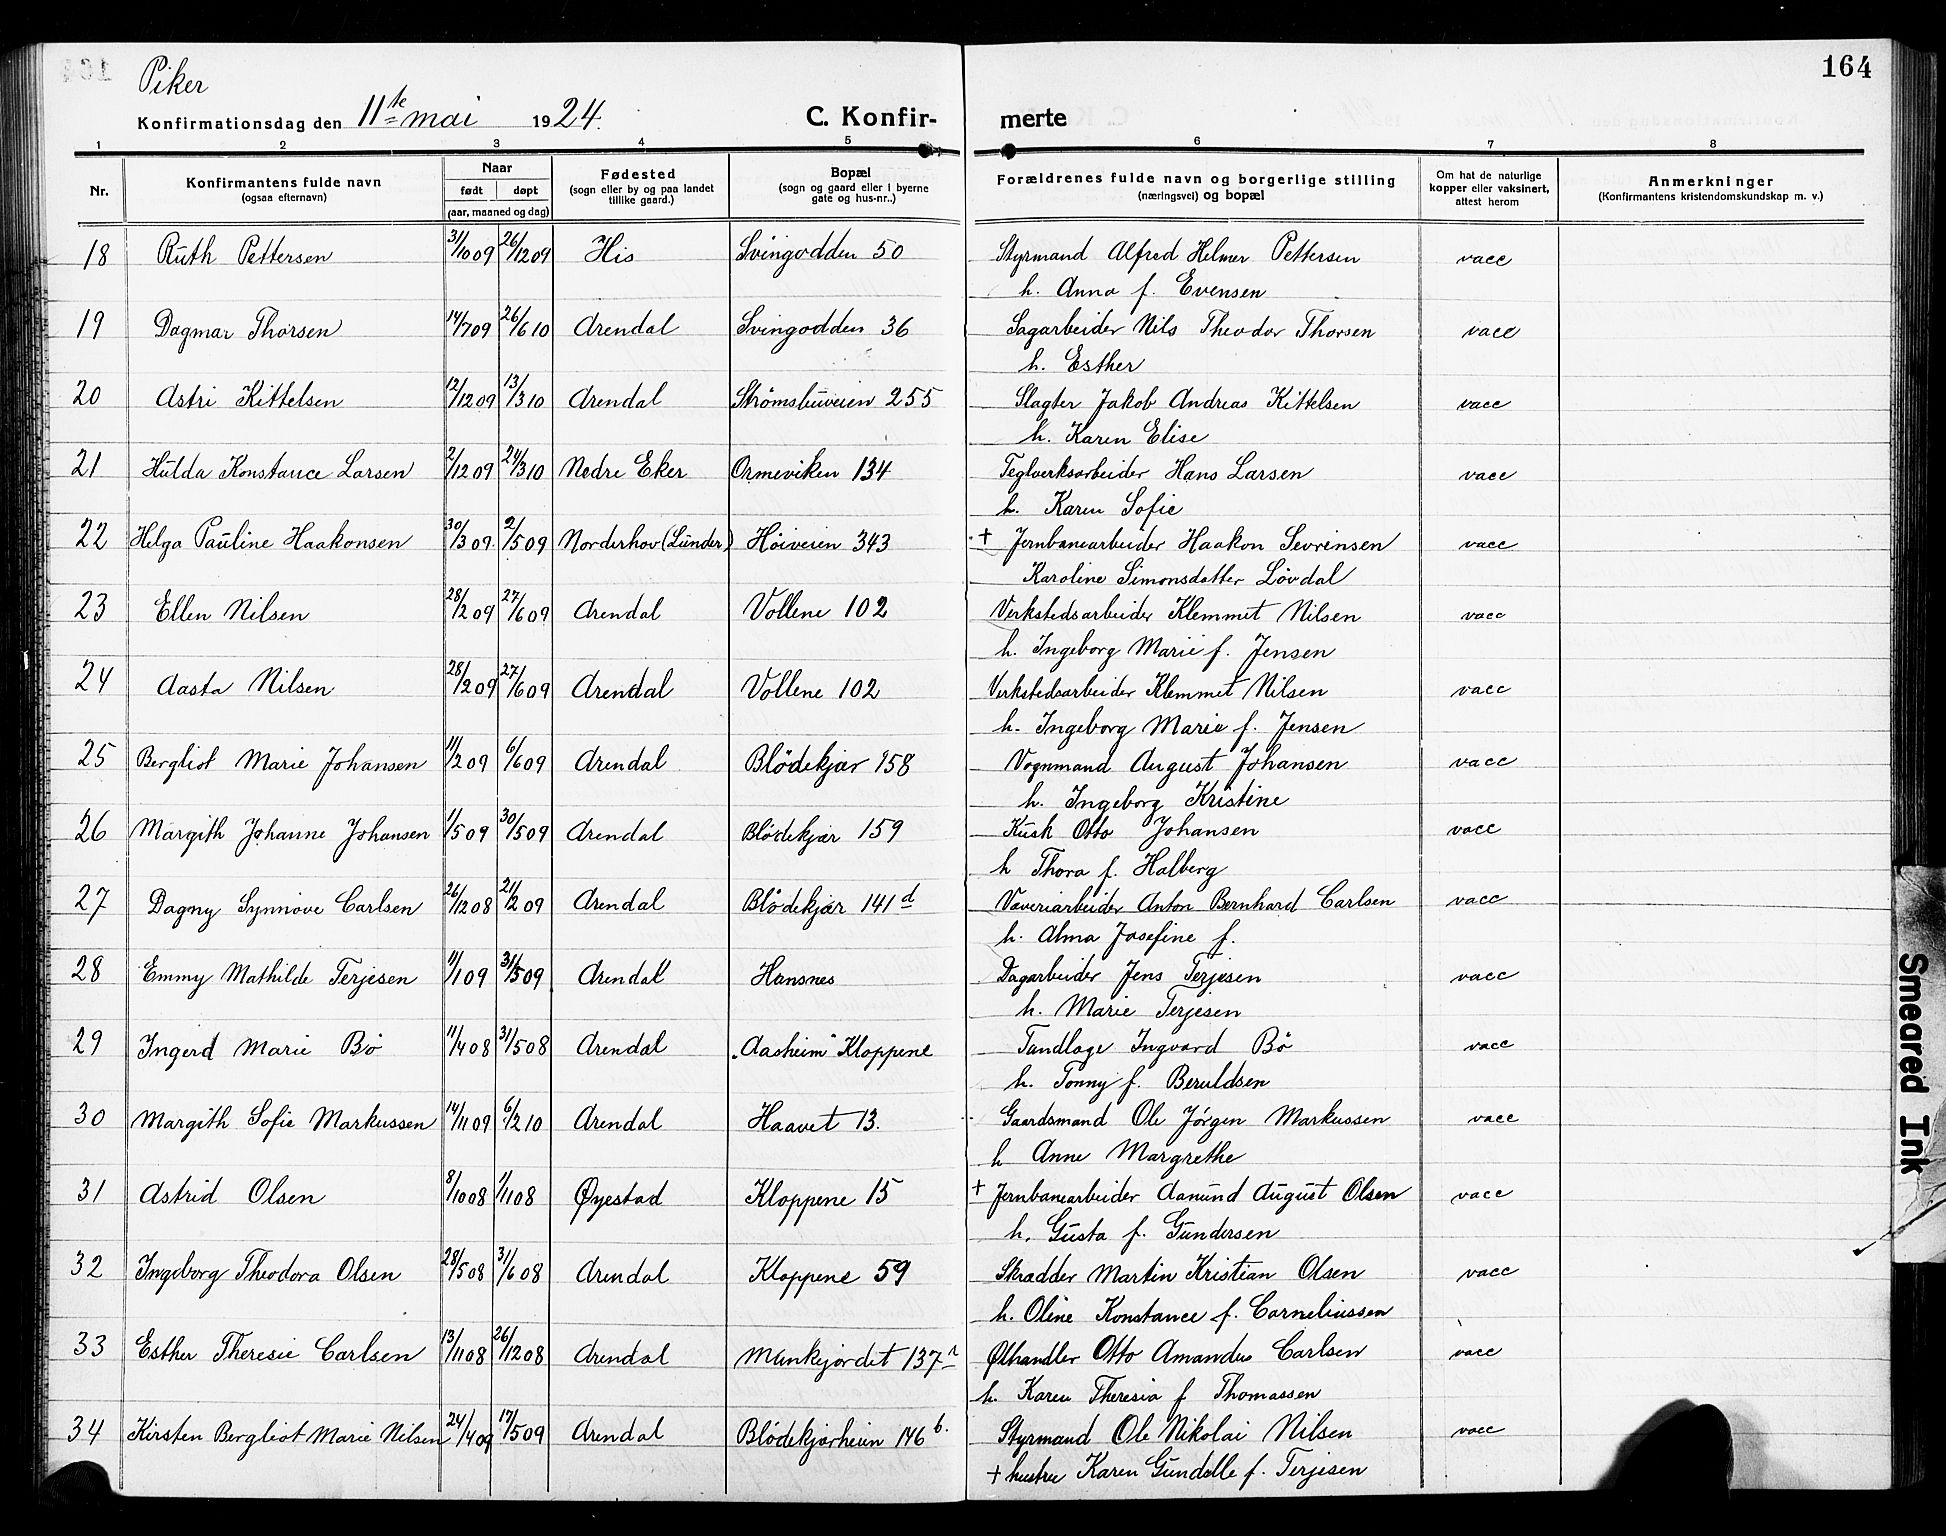 164
Piker
Konfirmationsdag den 11te mai 1924.
C. Konfir-
merte
1 2 3 4 5 6 7 8
Nr.
Konfirmantens fulde navn
(ogsaa efternavn)
Naar
født døpt
(aar, maaned og dag)
Fødested
(sogn eller by og paa landet
tillike gaard.)
Bopæl
(sogn og gaard eller i byerne
gate og hus-nr..)
Forældrenes fulde navn og borgerlige stilling
(næringsvei) og bopæl
Om hat de naturlige
kopper eller vaksinert,
attest herom
Anmerkninger
(Konfirmantens kristendomskundskap m. v.)
18 Ruth Pettersen 31/10 09 26/12 09 His Svingodden 50 Styrmand Alfred Helmer Pettersen vacc
h. Anna f. Evensen
19 Dagmar Thorsen 14/7 09 26/6 10 Arendal Svingodden 36 Sagarbeider Nils Theodor Thorsen vacc
h. Esther
20 Astri Kittelsen 12/12 09 13/3 10 Arendal Strømsbuveien 255 Slagter Jakob Andreas Kittelsen vacc
h. Karen Elise
21 Hulda Konstance Larsen 2/12 09 24/3 10 Nedre Eker Ormeviken 134 Teglverksarbeider Hans Larsen vacc
h. Karen Sofie
22 Helga Pauline Haakonsen 30/3 09. 2/5 09 Norderhov (Lunder) Höiveien 343 + Jernbanearbeider Haakon Sevrinsen vacc
Karoline Simonsdatter Lövdal
23 Ellen Nilsen 28/2 09 27/6 09 Arendal Vollene 102 Verkstedsarbeider Klemmet Nilsen vacc
h. Ingeborg Marie f. Jensen
24 Aasta Nilsen 28/2 09 27/6 09 Arendal Vollene 102 Verkstedsarbeider Klemmet Nilsen vacc
h. Ingeborg Marie f. Jensen
25 Bergliot Marie Johansen 11/2 09 6/6 09 Arendal Blödekjær 158 Vognmand August Johansen vacc
h. Ingeborg Kristine
26 Margith Johanne Johansen 1/5 09 30/5 09 Arendal Blödekjær 159 Kusk Otto Johansen vacc
h Thora f. Halberg
27 Dagny Synnöve Carlsen 26/12 08 21/2 09 Arendal Blödekjær 141 d Væveriarbeider Anton Bernhard Carlsen vacc
h. Alma Josefine f.
28 Emmy Mathilde Terjesen 11/1 09 31/5 09 Arendal Hansnes Dagarbeider Jens Terjesen vacc
h. Marie Terjesen
29 Ingerd Marie Bö 11/4 08 31/5 08 Arendal „Aasheim" Kloppene Tandlæge Ingvard Bö vacc
h. Tonny f. Beruldsen
30 Margith Sofie Markussen 14/11 09 6/2 10 Arendal Haavet 13. Gaardsmand Ole Jörgen Markussen vacc
h Anne Margrethe
31 Astrid Olsen 8/10 08 1/11 08 Øyestad Kloppene 15 + Jernbanearbeider Aanund August Olsen vacc
h. Gusta f. Gundersen
32 Ingeborg Theodora Olsen 28/5 08 31/6 08 Arendal Kloppene 59 Skrædder Martin Kristian Olsen vacc
h. Oline Konstance f. Corneliussen
33 Esther Theresie Carlsen 13/11 08 26/12 08 Arendal Munkejordet 137 Ølhandler Otto Amandus Carlsen vacc
h. Karen Theresia f Thomassen
34 Kirsten Bergliot Marie Nilsen 24/4 09 17/5 09 Arendal Blödekjærheien 146 b. Styrmand Ole Nikolai Nilsen vacc
+ hustru Karen Gundelle f. Terjesen
Smeared Ink